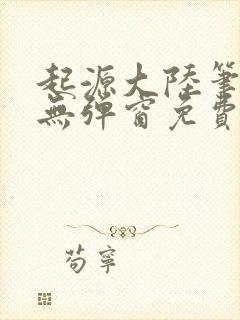 起源大陸筆
無彈窗免費
茍寧